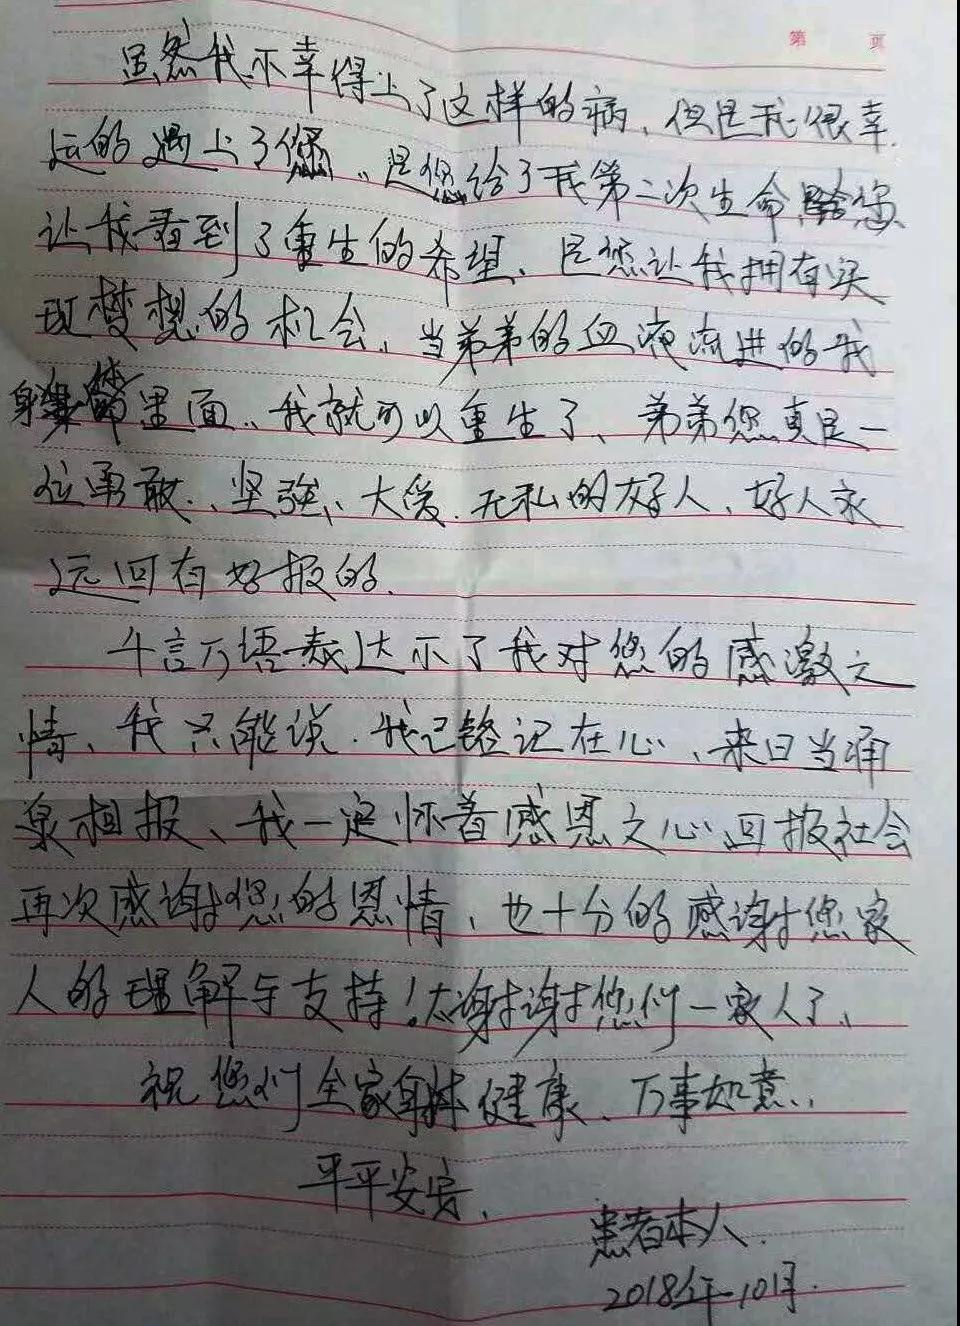 第 页
虽然我不幸得上了这样的病、但是我很幸
运的遇上了您、是您给了我第二次生命 是您
让我看到了重生的希望、是您让我拥有实
现梦想的机会、当弟弟的血液流进的我
身体里面、我就可以重生了、弟弟您真是一
位勇敢、坚强、大爱、无私的好人、好人永
远回有好报的.
千言万语表达不了我对您的感激之
情、我只能说.我已铭记在心、来日当涌
泉相报、我一定怀着感恩之心回报社会
再次感谢您的恩情、也十分的感谢您家
人的理解与支持!太谢谢您们一家人了、
祝您们全家身体健康、万事如意、
平平安安、
患者本人.
2018年10月.